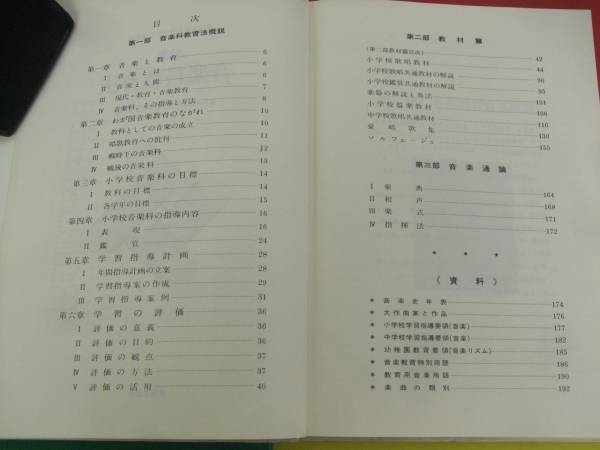 目次
第一部 音楽科教育法概説
第一章 音楽と教育 6
I 音楽とは 6
II 音楽と人間 6
III 現代・教育・音楽教育 7
IV 音楽科、その指導と方法 8
第二章 わが国音楽教育のながれ 10
I 教科としての音楽の成立 10
II 唱歌教育への批判 11
III 戦時下の音楽科 12
IV 戦後の音楽科 13
第三章 小学校音楽科の目標 14
I 教科の目標 14
II 各学年の目標 15
第四章 小学校音楽科の指導内容 16
I 表現 16
II 鑑賞 24
第五章 学習指導計画 28
I 年間指導計画の立案 28
II 学習指導案の作成 29
III 学習指導案例 31
第六章 学習の評価 36
I 評価の意義 36
II 評価の目的 36
III 評価の観点 37
IV 評価の方法 37
V 評価の活用 40
第二部 教材篇
(第二部教材篇目次) 42
小学校歌唱教材 44
小学校歌唱共通教材の解説 90
小学校鑑賞共通教材の解説 95
楽器の解説と奏法 101
小学校器楽教材 108
中学校歌唱共通教材 116
愛唱歌集 130
ソルフェージュ 155
第三部 音楽通論
I 楽典 164
II 和声 168
III 楽式 171
IV 指揮法 172
* * *
〈資料〉
* 音楽史年表 174
* 大作曲家と作品 176
* 小学校学習指導要領(音楽) 177
* 中学校学習指導要領(音楽) 182
* 幼稚園教育要領(音楽リズム) 185
* 音楽教育特別用語 186
* 教育用音楽用語 190
* 楽曲の類別 192